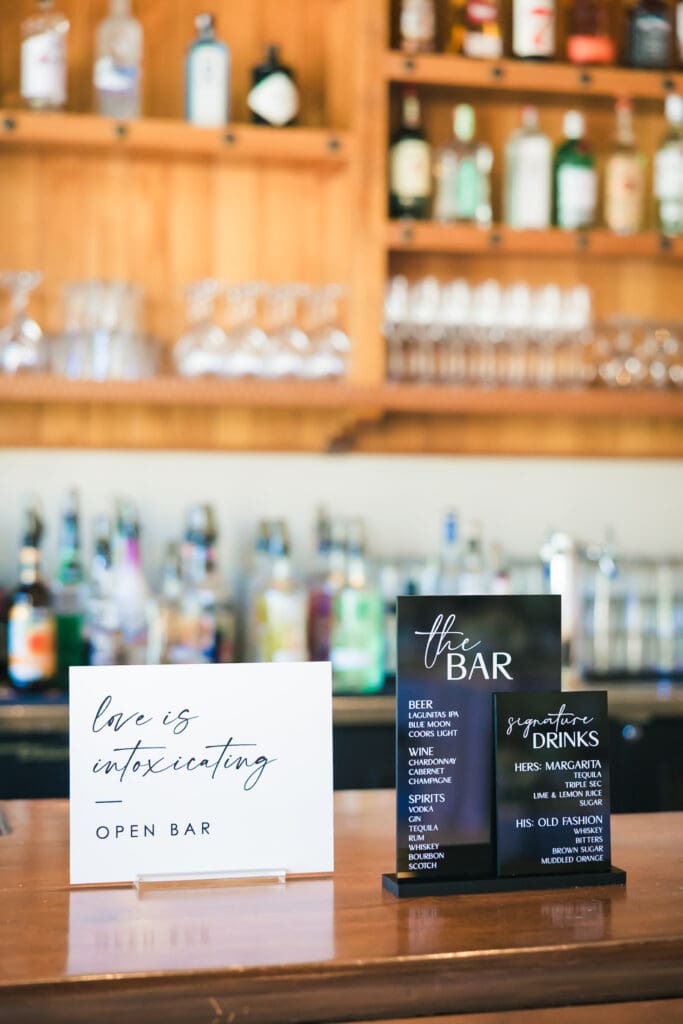 love is
intoxicating
OPEN BAR
the
BAR
BEER
LAGUNITAS IPA
BLUE MOON
COORS LIGHT
WINE
CHARDONNAY
CABERNET
CHAMPAGNE
SPIRITS
VODKA
GIN
TEQUILA
RUM
WHISKEY
BOURBON
SCOTCH
signature
DRINKS
HERS: MARGARITA
TEQUILA
TRIPLE SEC
LIME & LEMON JUICE
SUGAR
HIS: OLD FASHION
WHISKEY
BITTERS
BROWN SUGAR
MUDDLED ORANGE